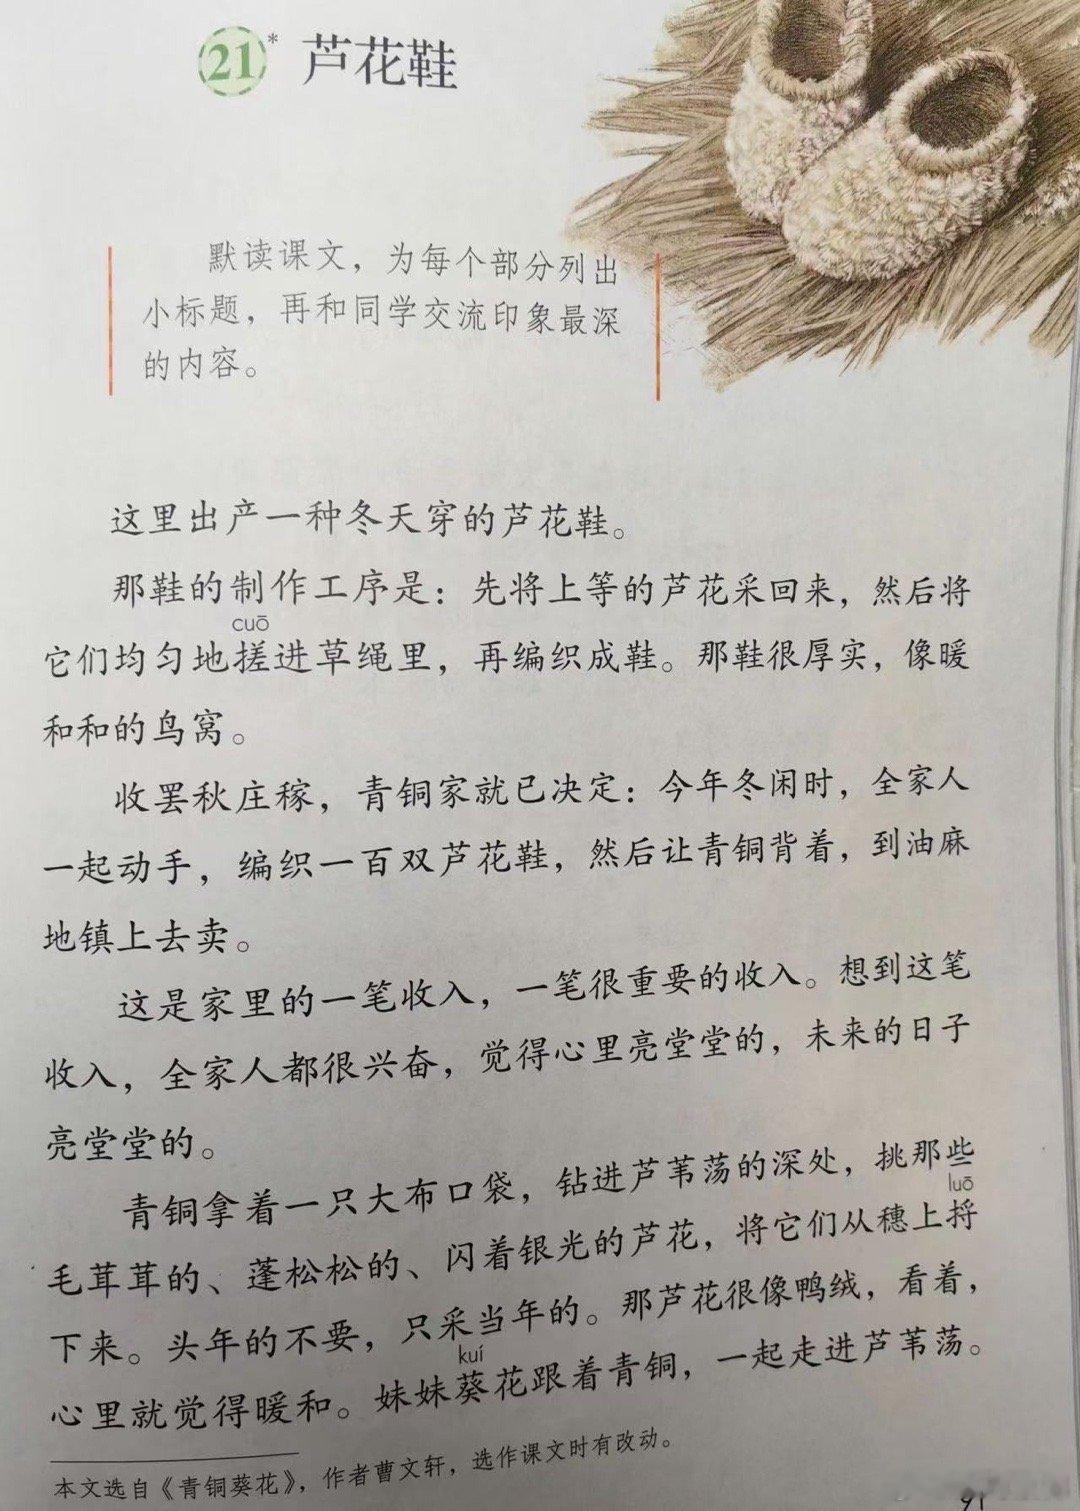 21* 芦花鞋
默读课文，为每个部分列出
小标题，再和同学交流印象最深
的内容。
这里出产一种冬天穿的芦花鞋。
那鞋的制作工序是：先将上等的芦花采回来，然后将
cuō
它们均匀地搓进草绳里，再编织成鞋。那鞋很厚实，像暖
和和的鸟窝。
收罢秋庄稼，青铜家就已决定：今年冬闲时，全家人
一起动手，编织一百双芦花鞋，然后让青铜背着，到油麻
地镇上去卖。
这是家里的一笔收入，一笔很重要的收入。想到这笔
收入，全家人都很兴奋，觉得心里亮堂堂的，未来的日子
亮堂堂的。
青铜拿着一只大布口袋，钻进芦苇荡的深处，挑那些
luō
毛茸茸的、蓬松松的、闪着银光的芦花，将它们从穗上捋
下来。头年的不要，只采当年的。那芦花很像鸭绒，看着，
kuí
心里就觉得暖和。妹妹葵花跟着青铜，一起走进芦苇荡。
本文选自《青铜葵花》，作者曹文轩，选作课文时有改动。
91